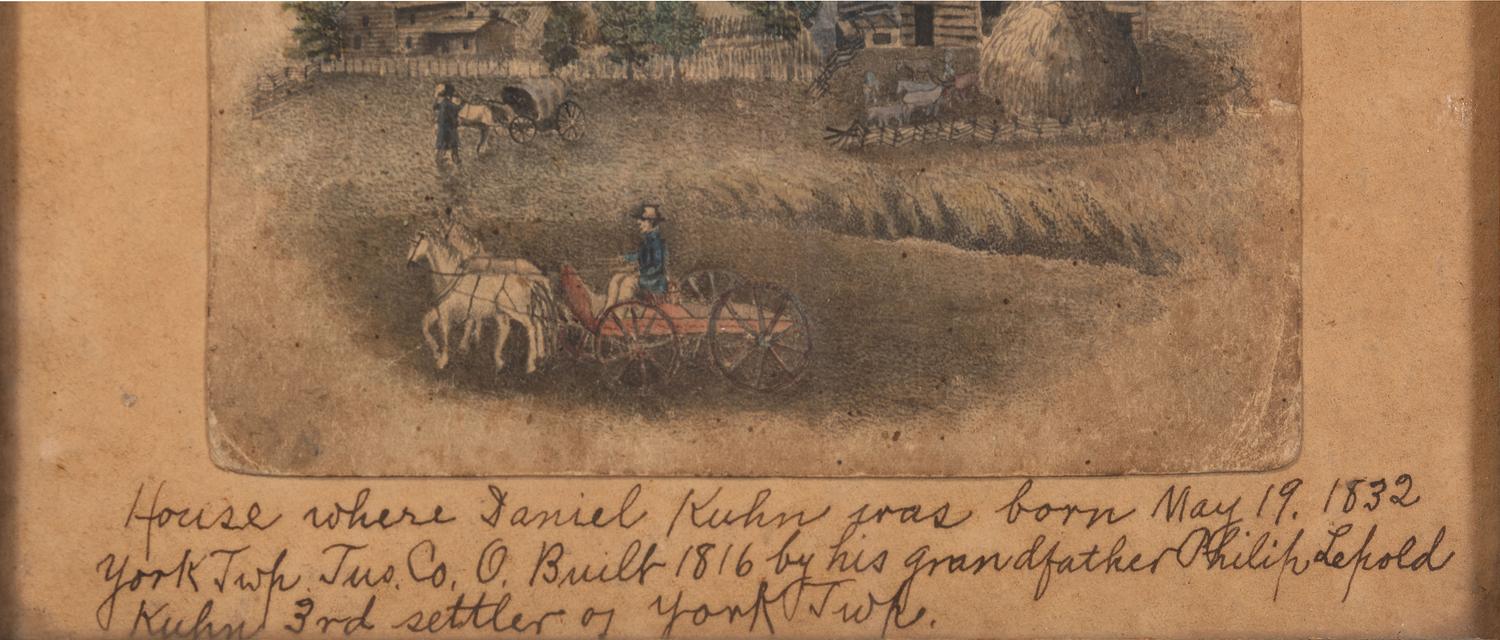 House where Daniel Kuhn was born May 19. 1832
York Twp. Tus. Co. O. Built 1816 by his grandfather Philip Lepold
Kuhn 3rd settler of York Twp.